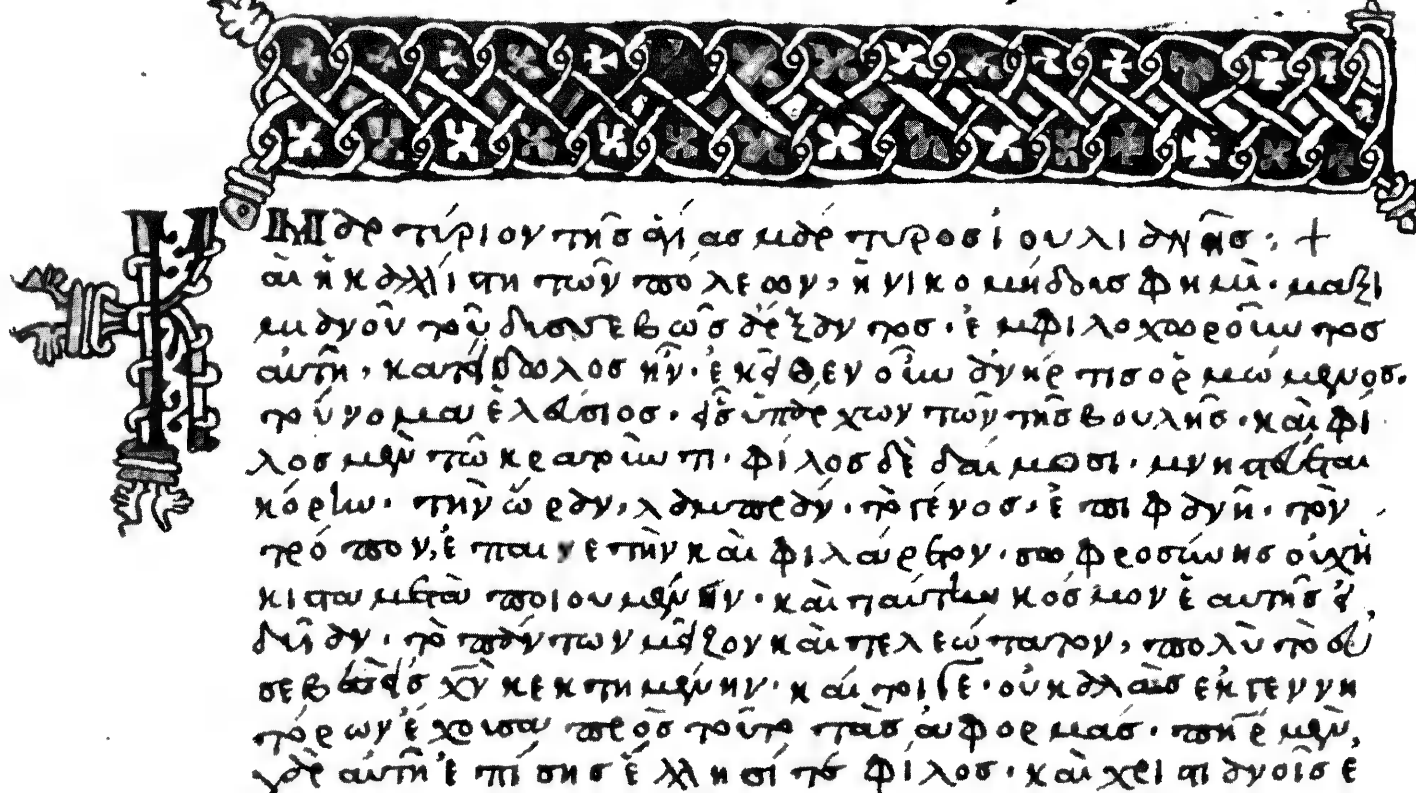 Μαρτύριον τῆς ἁγίας μάρτυρος ἰουλιανῆς: +
Καὶ ἡ καλλίστη τῶν πόλεων, ἡ νικομήδους φημὶ· μαξι
μιανοῦ τοῦ δυσσεβῶς ἄρξαντος· ἐμφιλοχωροῦντος
αὐτῆ, κατείδωλος ἦν· ἐκεῖθεν οὖν ἀνήρ τις ὁρμώμενος·
τοὔνομα ἐλεύσιος· εἷς ὑπάρχων τῶν τῆς βουλῆς· καὶ φί
λος μὲν τῶ κρατοῦντι· φίλος δὲ δαίμοσι· μνηστεύεται
κόρην· τὴν ὥραν, λαμπράν· τὸ γένος, ἐπιφανῆ· τὸν
τρόπον, ἐπαινετὴν καὶ φιλάρετον· σωφροσύνης οὐχ ἥ
κιστα μεταποιουμένην· καὶ ταύτην κόσμον ἑαυτῆς εἰ
δυῖαν· τὸ πάντων μεῖζον καὶ τελεώτατον, πολὺ τὸ εὐ
σεβὲς εἰς χν κεκτημένην· καίτοιγε· οὐ καλὰς ἐκ γεννη
τόρων ἔχουσα πρὸς τοῦτο τὰς ἀφορμάς· πατὴρ μὲν,
γὰρ αὐτῆ ἐπίσης ἕλλησί τε φίλος· καὶ χριστιανοῖς ἐ